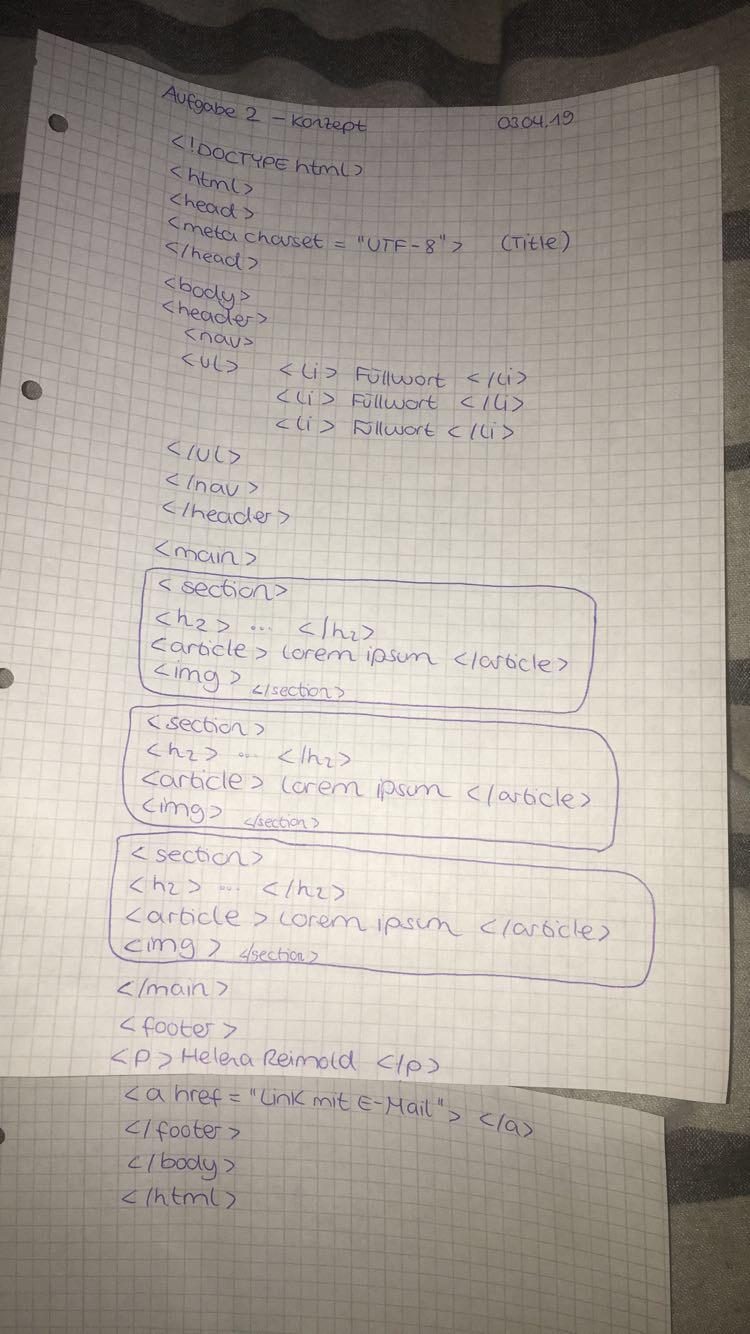 Aufgabe 2 - Konzept 03.04.19
<!DOCTYPE html>
<html>
<head>
<meta charset = "UTF-8"> (Title)
</head>
<body>
<header>
<nav>
<ul> <li> Füllwort </li>
<li> Füllwort </li>
<li> Füllwort </li>
</ul>
</nav>
</header>
<main>
<section>
<h2> ... </h2>
<article> Lorem ipsum </article>
<img> </section>
<section>
<h2> ... </h2>
<article> Lorem ipsum </article>
<img> </section>
<section>
<h2> ... </h2>
<article> Lorem ipsum </article>
<img> </section>
</main>
<footer>
<p> Helena Reimold </p>
<a href = "Link mit E-Mail"> </a>
</footer>
</body>
</html>